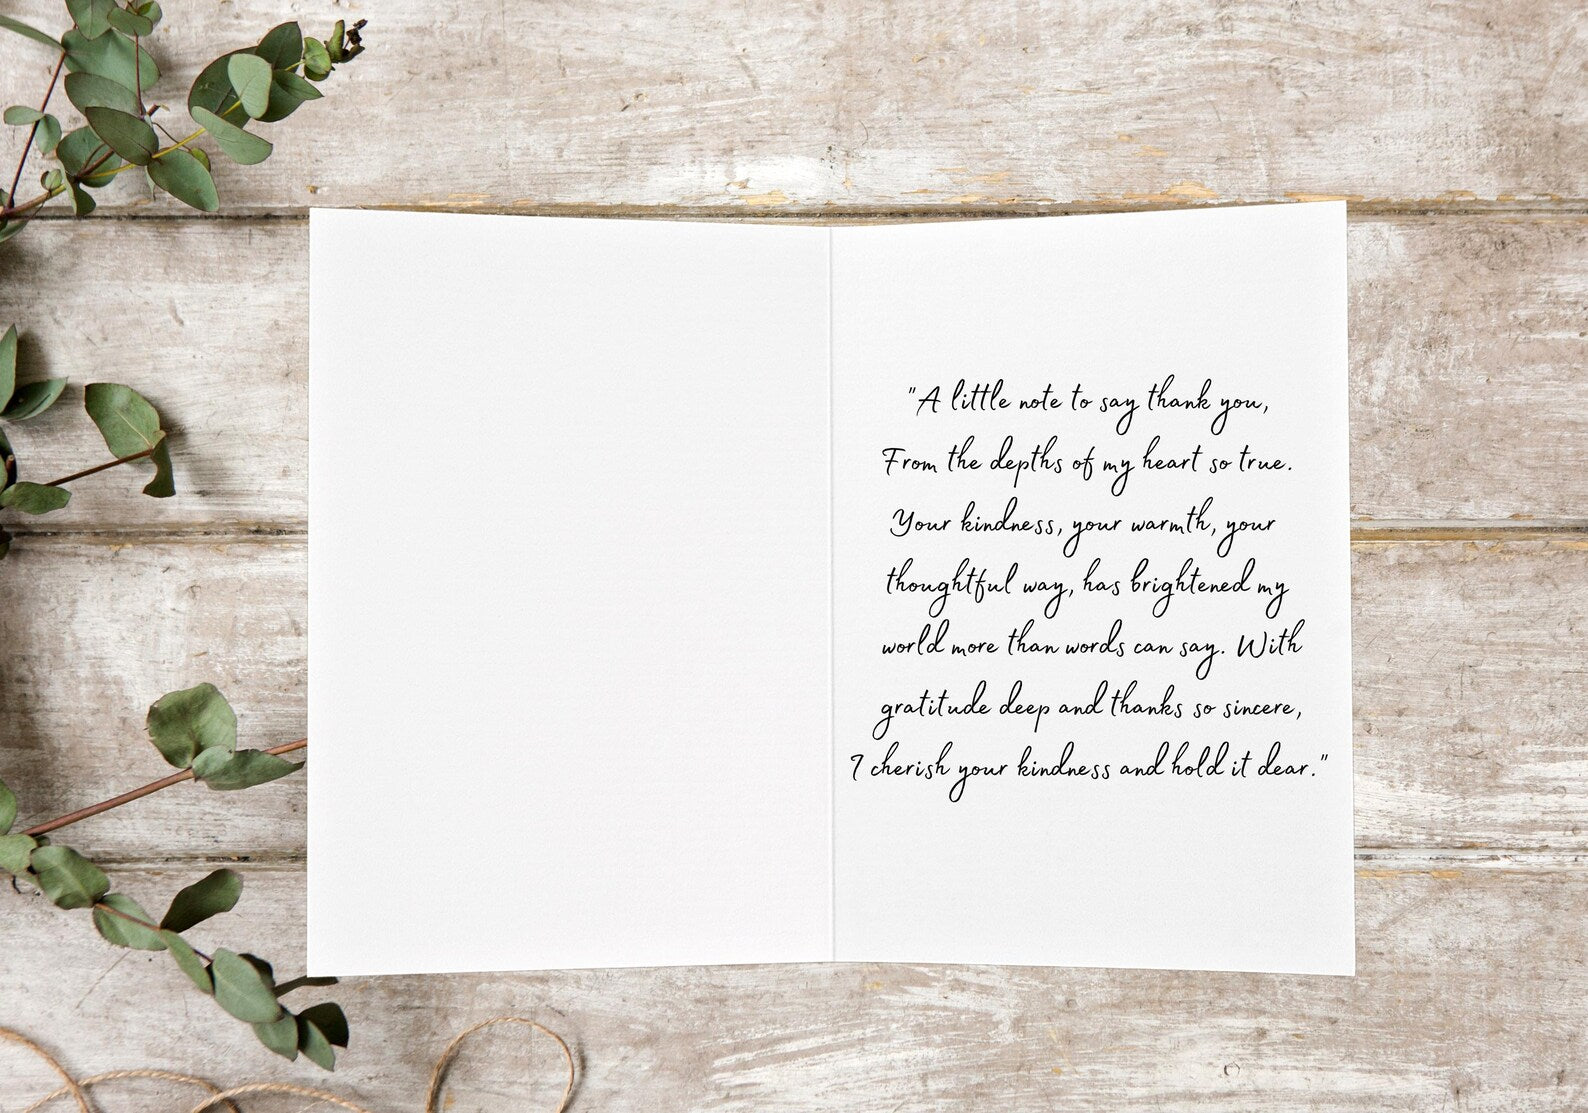 "A little note to say thank you,
From the depths of my heart so true.
Your kindness, your warmth, your
thoughtful way, has brightened my
world more than words can say. With
gratitude deep and thanks so sincere,
I cherish your kindness and hold it dear."